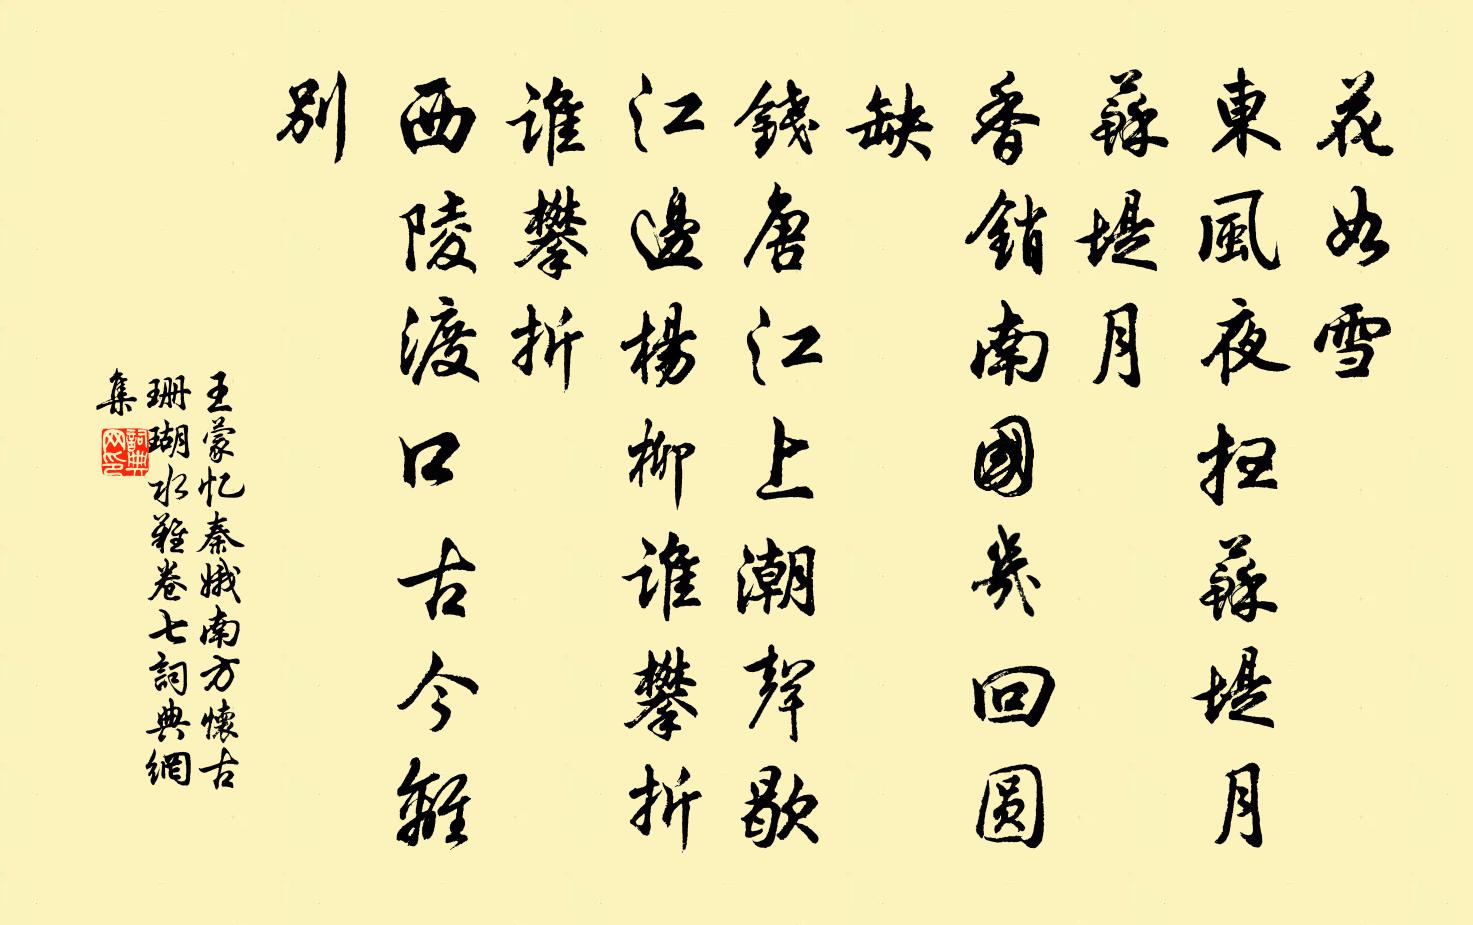 花如雪
東風夜掃蘇堤月
蘇堤月
香銷南國幾回圆
缺
錢唐江上潮聲歇
江邊楊柳誰攀折
誰攀折
西陵渡口古今離
別
王蒙忆秦娥南方懷古
珊瑚水難卷七詞典網
集
詞典
网印